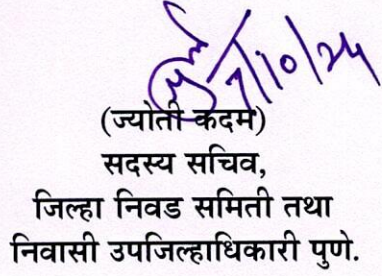 7/10/24
(ज्योती कदम)
सदस्य सचिव,
जिल्हा निवड समिती तथा
निवासी उपजिल्हाधिकारी पुणे.